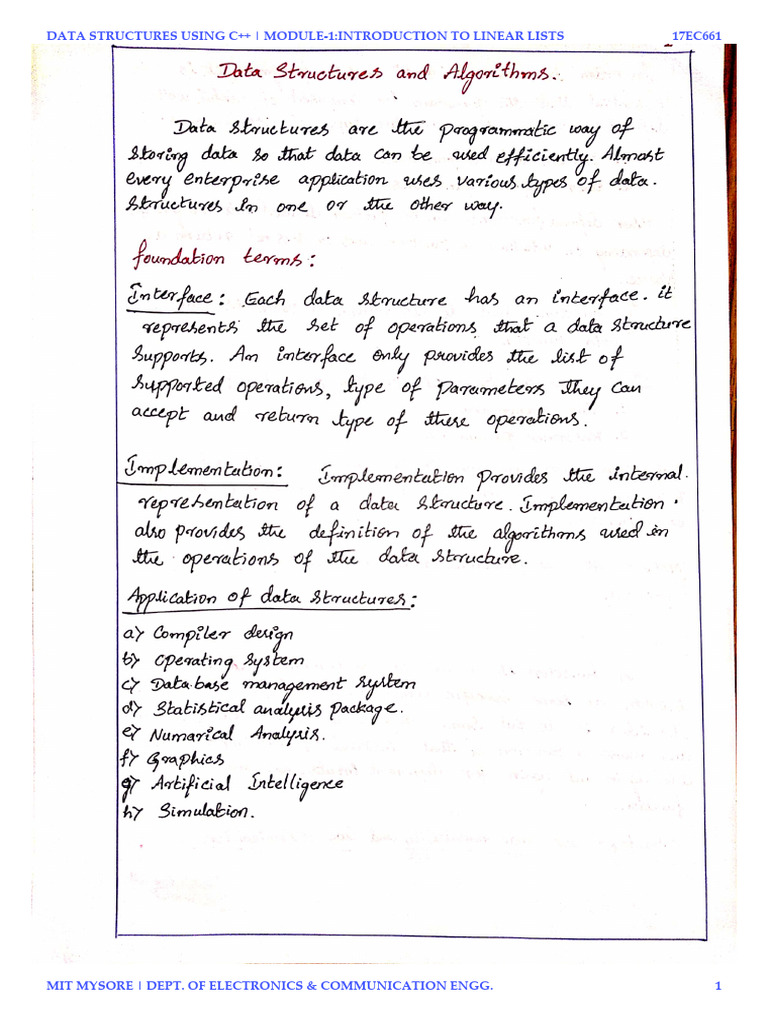 DATA STRUCTURES USING C++ | MODULE-1:INTRODUCTION TO LINEAR LISTS 17EC661
Data Structures and Algorithms.
Data structures are the programmatic way of
storing data so that data can be used efficiently. Almost
every enterprise application uses various types of data.
structures in one or the other way.
foundation terms:
Interface: Each data structure has an interface. it
represents the set of operations that a data structure
supports. An interface only provides the list of
supported operations, type of parameters they can
accept and return type of these operations.
Implementation: Implementation provides the internal.
representation of a data structure. Implementation
also provides the definition of the algorithms used in
the operations of the data structure.
Application of data structures:
a) Compiler design
b) Operating system
c) Data base management system
d) Statistical analysis package.
e) Numarical Analysis.
f) Graphics
g) Artificial Intelligence
h) Simulation.
MIT MYSORE | DEPT. OF ELECTRONICS & COMMUNICATION ENGG. 1